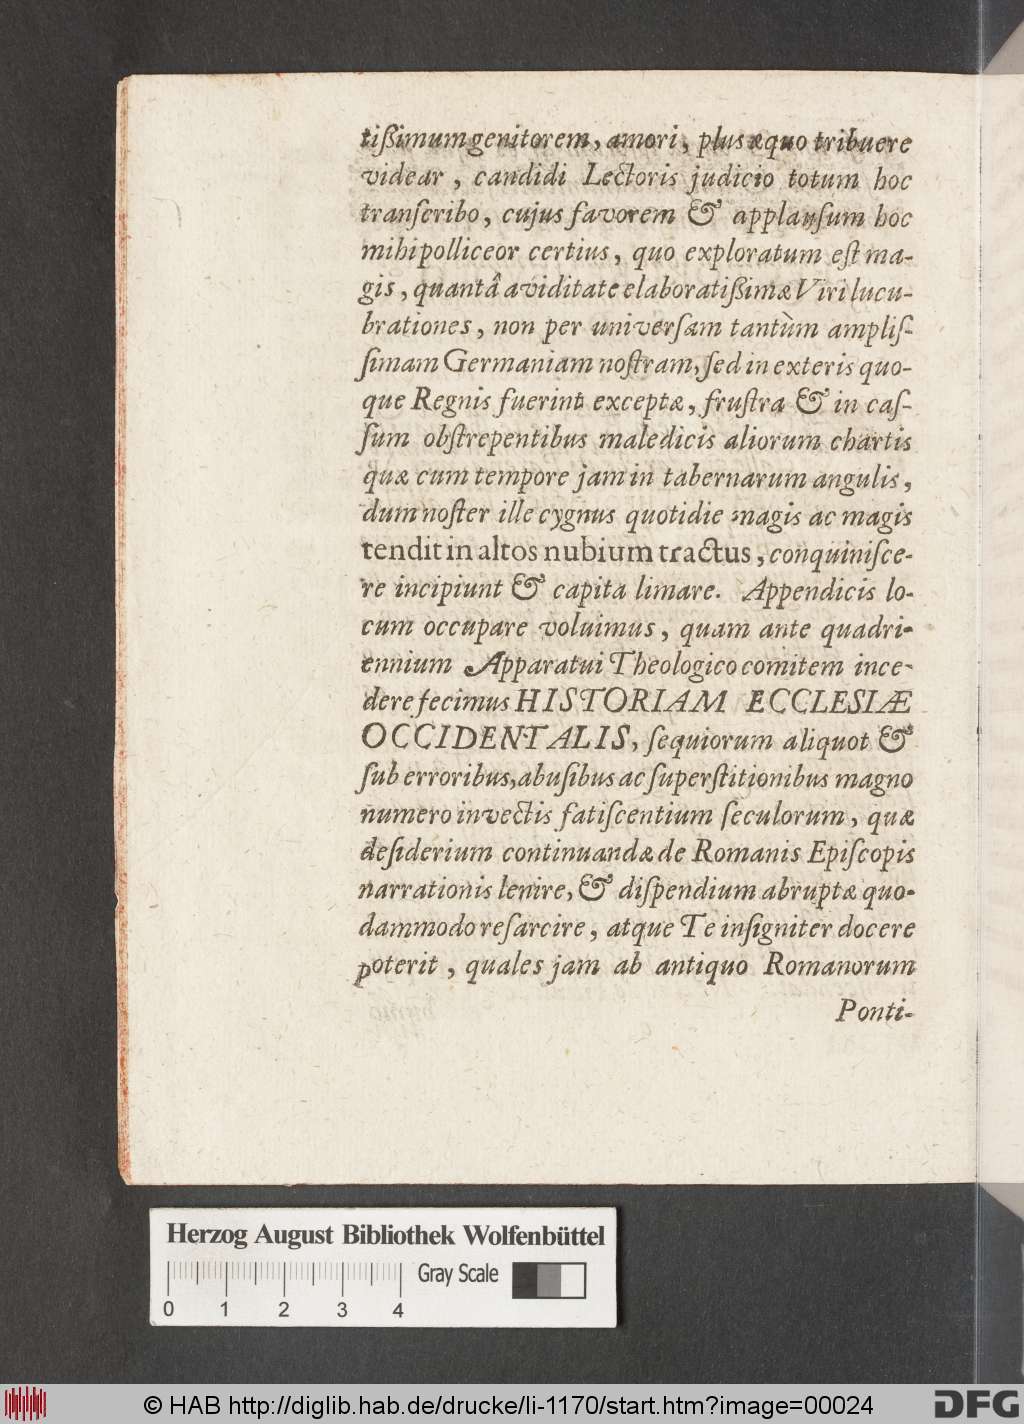 tiſſimum genitorem, amori, plus æquo tribuere
videar, candidi Lectoris judicio totum hoc
tranſcribo, cujus favorem & applauſum hoc
mihi polliceor certius, quo exploratum eſt ma-
gis, quantâ aviditate elaboratiſſimæ Viri lucu-
brationes, non per univerſam tantùm ampliſ-
ſimam Germaniam noſtram, ſed in exteris quo-
que Regnis fuerint exceptæ, fruſtra & in caſ-
ſum obſtrepentibus maledicis aliorum chartis
quæ cum tempore jam in tabernarum angulis,
dum noſter ille cygnus quotidie magis ac magis
tendit in altos nubium tractus, conquiniſce-
re incipiunt & capita limare. Appendicis lo-
cum occupare voluimus, quam ante quadri-
ennium Apparatui Theologico comitem ince-
dere fecimus HISTORIAM ECCLESIÆ
OCCIDENTALIS, ſequiorum aliquot &
ſub erroribus, abuſibus ac ſuperſtitionibus magno
numero invectis fatiſcentium ſeculorum, quæ
deſiderium continuandæ de Romanis Epiſcopis
narrationis lenire, & diſpendium abruptæ quo-
dammodo reſarcire, atque Te inſigniter docere
poterit, quales jam ab antiquo Romanorum
Ponti-
Herzog August Bibliothek Wolfenbüttel
Gray Scale
0 1 2 3 4
© HAB http://diglib.hab.de/drucke/li-1170/start.htm?image=00024
DFG